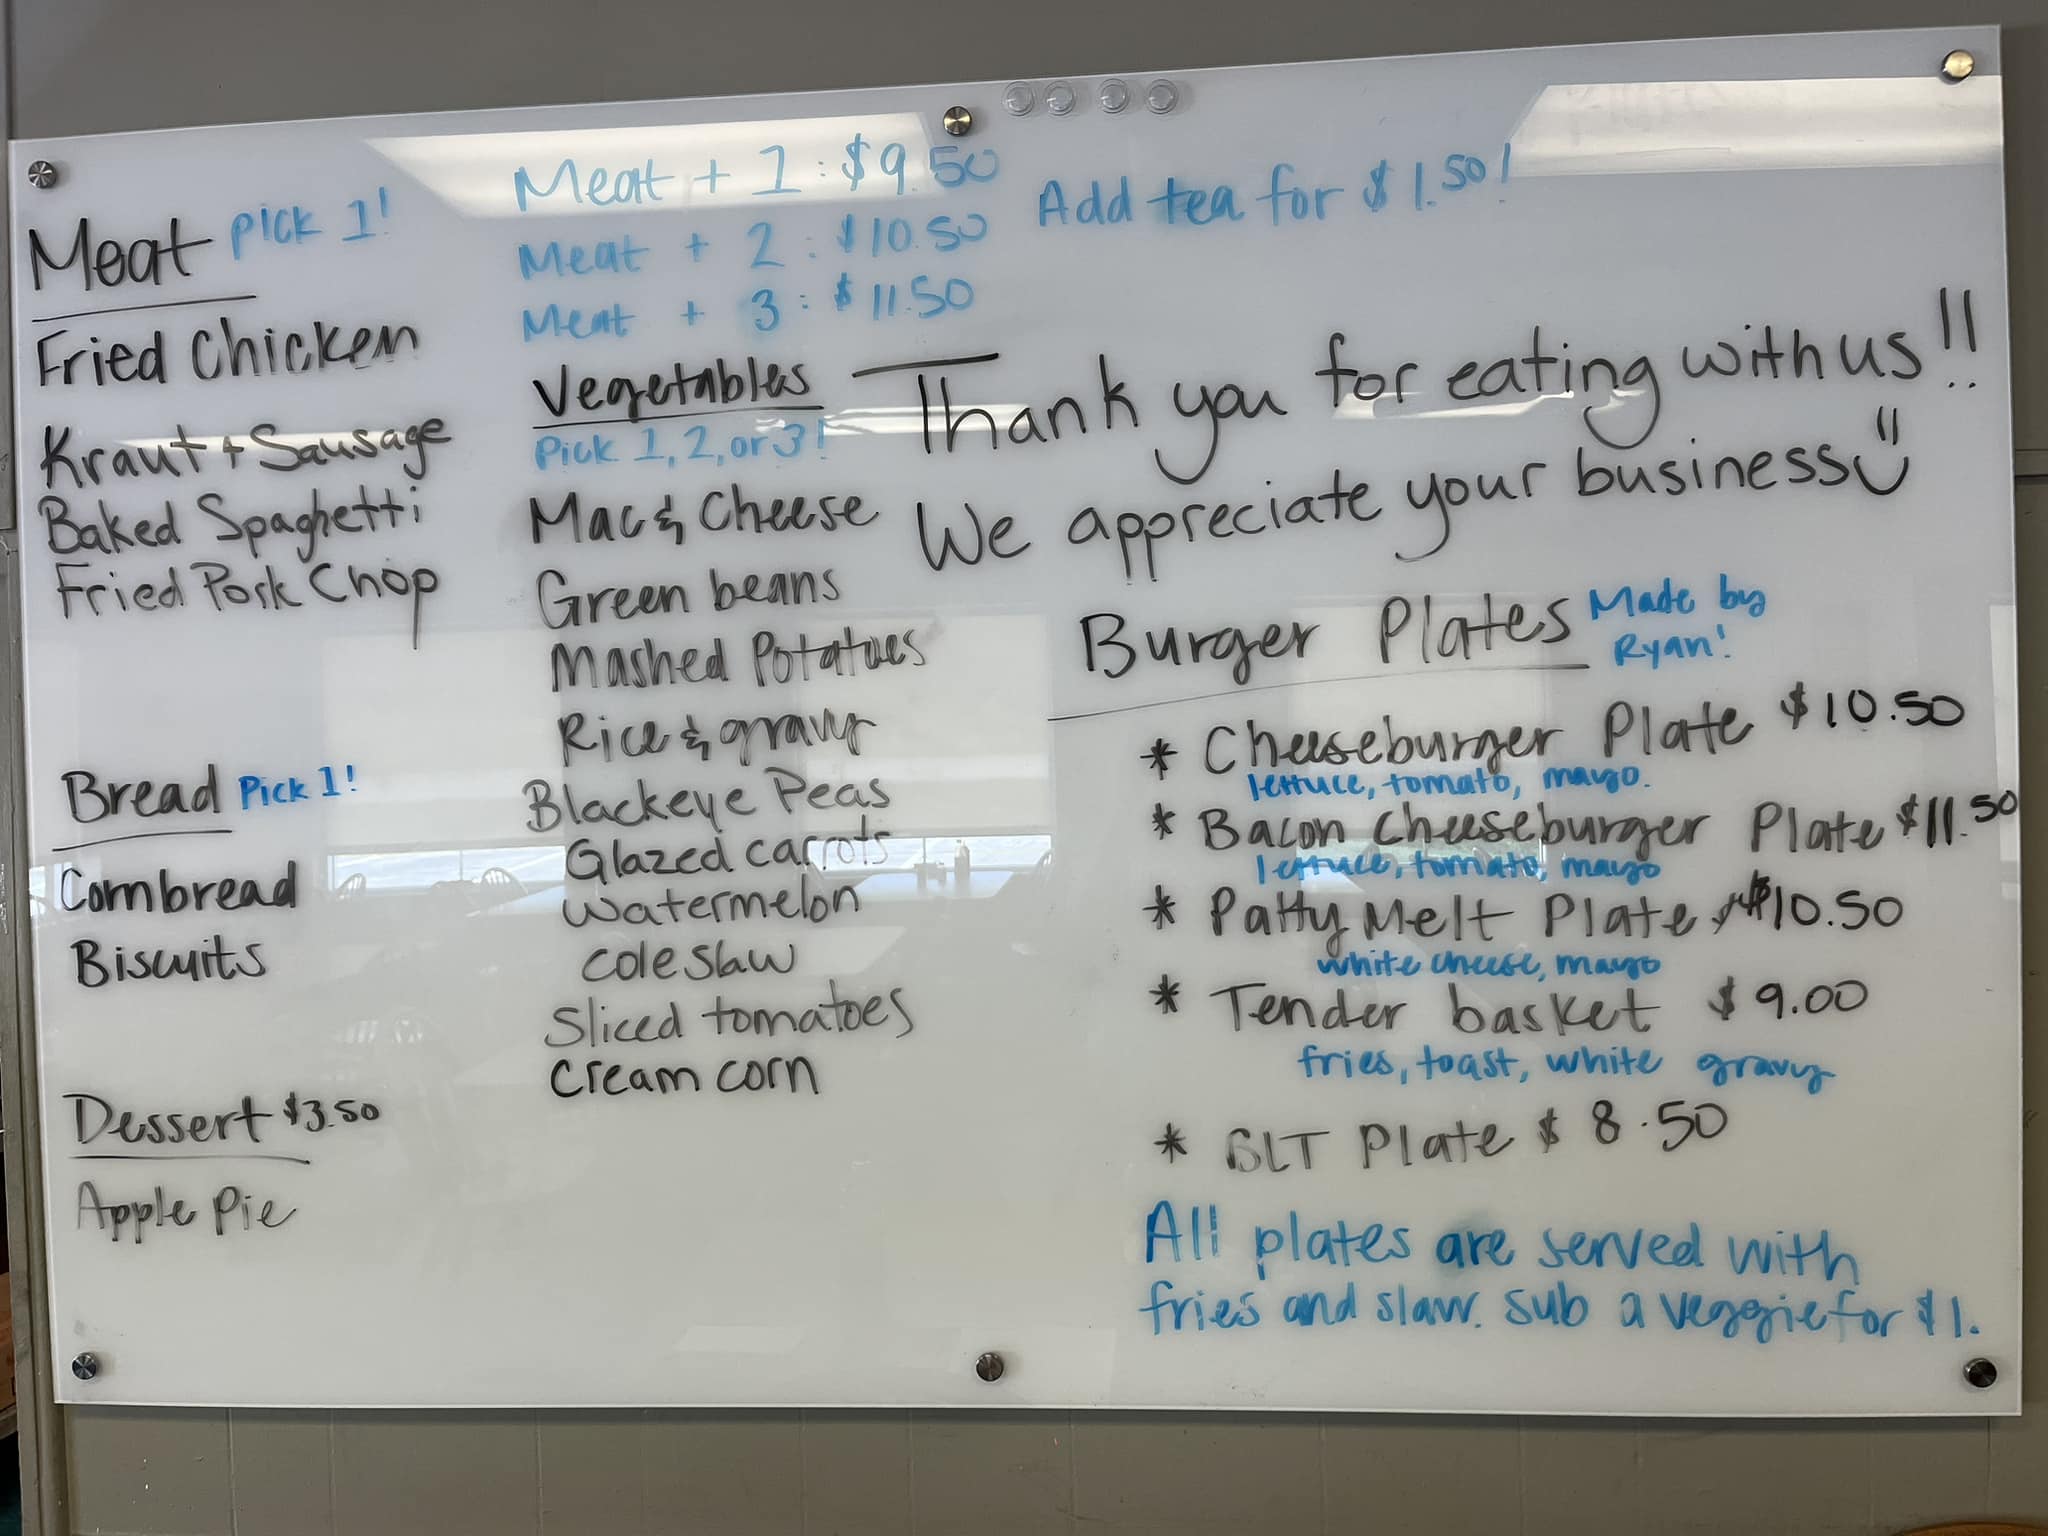 Meat pick 1!
Fried Chicken
Kraut + Sausage
Baked Spaghetti
Fried Pork Chop
Bread Pick 1!
Cornbread
Biscuits
Dessert $3.50
Apple Pie
Meat + 1 : $9.50
Meat + 2 : $10.50
Meat + 3 : $11.50
Vegetables
Pick 1, 2, or 3!
Mac & Cheese
Green beans
Mashed Potatoes
Rice & gravy
Blackeye Peas
Glazed carrots
Watermelon
Coleslaw
Sliced tomatoes
Cream corn
Add tea for $1.50!
Thank you for eating with us!!
We appreciate your business
Burger Plates Made by
Ryan!
* Cheeseburger Plate $10.50
lettuce, tomato, mayo.
* Bacon Cheeseburger Plate $11.50
lettuce, tomato, mayo
* Patty Melt Plate $10.50
white cheese, mayo
* Tender basket $9.00
fries, toast, white gravy
* BLT Plate $8.50
All plates are served with
fries and slaw. Sub a veggie for $1.